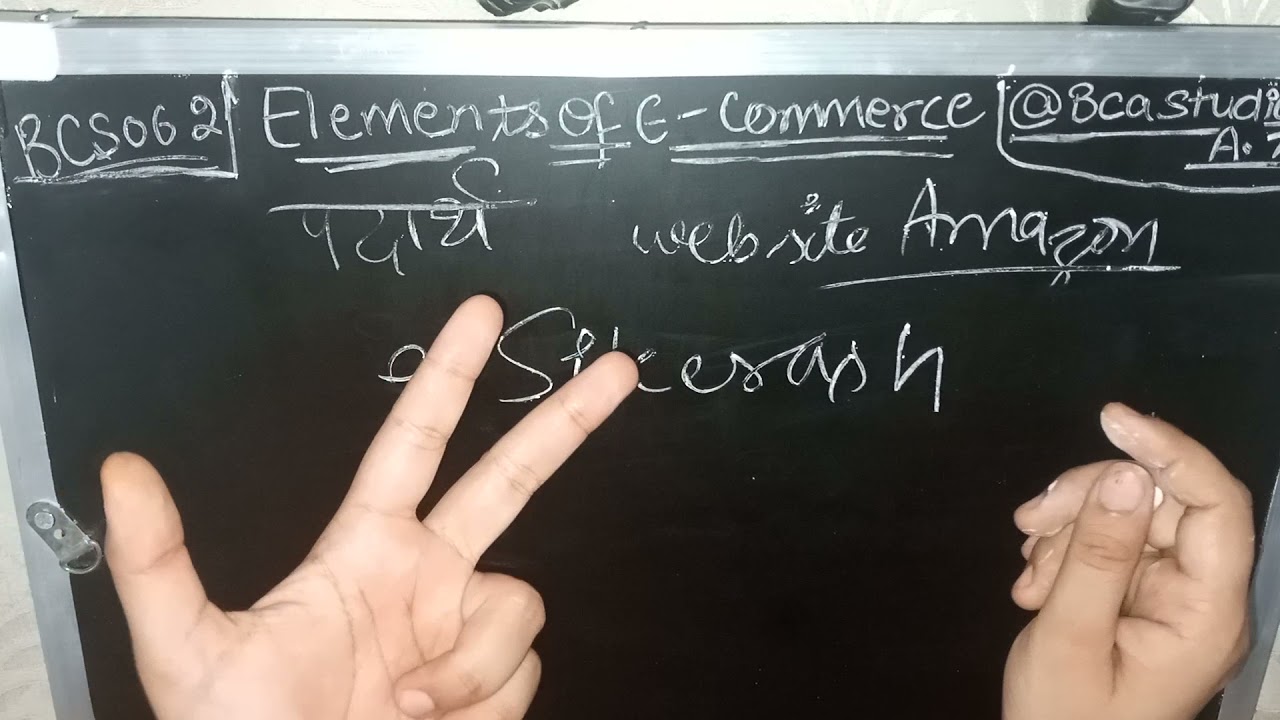 BCS062 Elements of E-Commerce @Bcastudi
A.
पदार्थ website Amazon